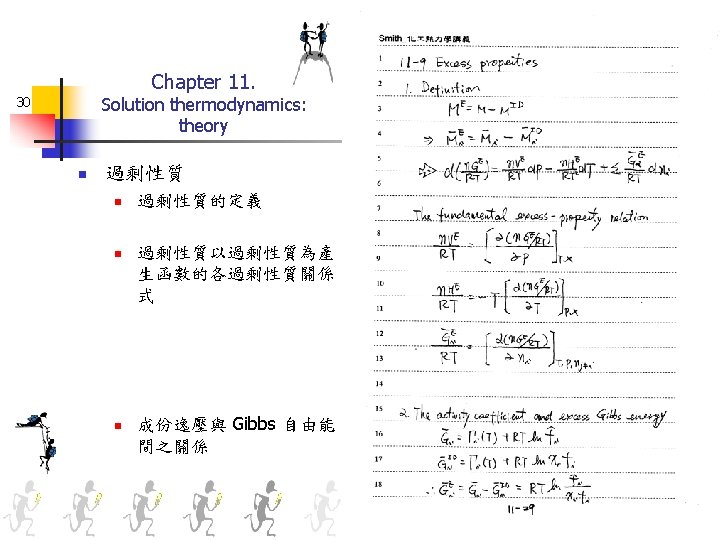 Chapter 11.
30
Solution thermodynamics:
theory
過剩性質
過剩性質的定義
過剩性質以過剩性質為產
生函數的各過剩性質關係
式
成份逸壓與 Gibbs 自由能
間之關係
Smith 化工熱力學講義
1 11-9 Excess properties
2 1. Definition
3 M^E = M - M^ID
4 ⇒ M̄_i^E = M̄_i - M̄_i^ID
5 d(nG^E/RT) = nV^E/RT dP - nH^E/RT² dT + Σ Ḡ_i^E/RT dn_i
6
7 The fundamental excess-property relation
8 nV^E/RT = [∂(nG^E/RT)/∂P]_T,x
9
10 nH^E/RT = -T [∂(nG^E/RT)/∂T]_P,x
11
12 Ḡ_i^E/RT = [∂(nG^E/RT)/∂n_i]_T,P,n_j≠i
13
14
15 2. The activity coefficient and excess Gibbs energy
16 Ḡ_i = Γ_i(T) + RT ln f̂_i
17 Ḡ_i^ID = Γ_i(T) + RT ln x_i f_i
18 ∴ Ḡ_i^E = Ḡ_i - Ḡ_i^ID = RT ln f̂_i/x_i f_i
11-29